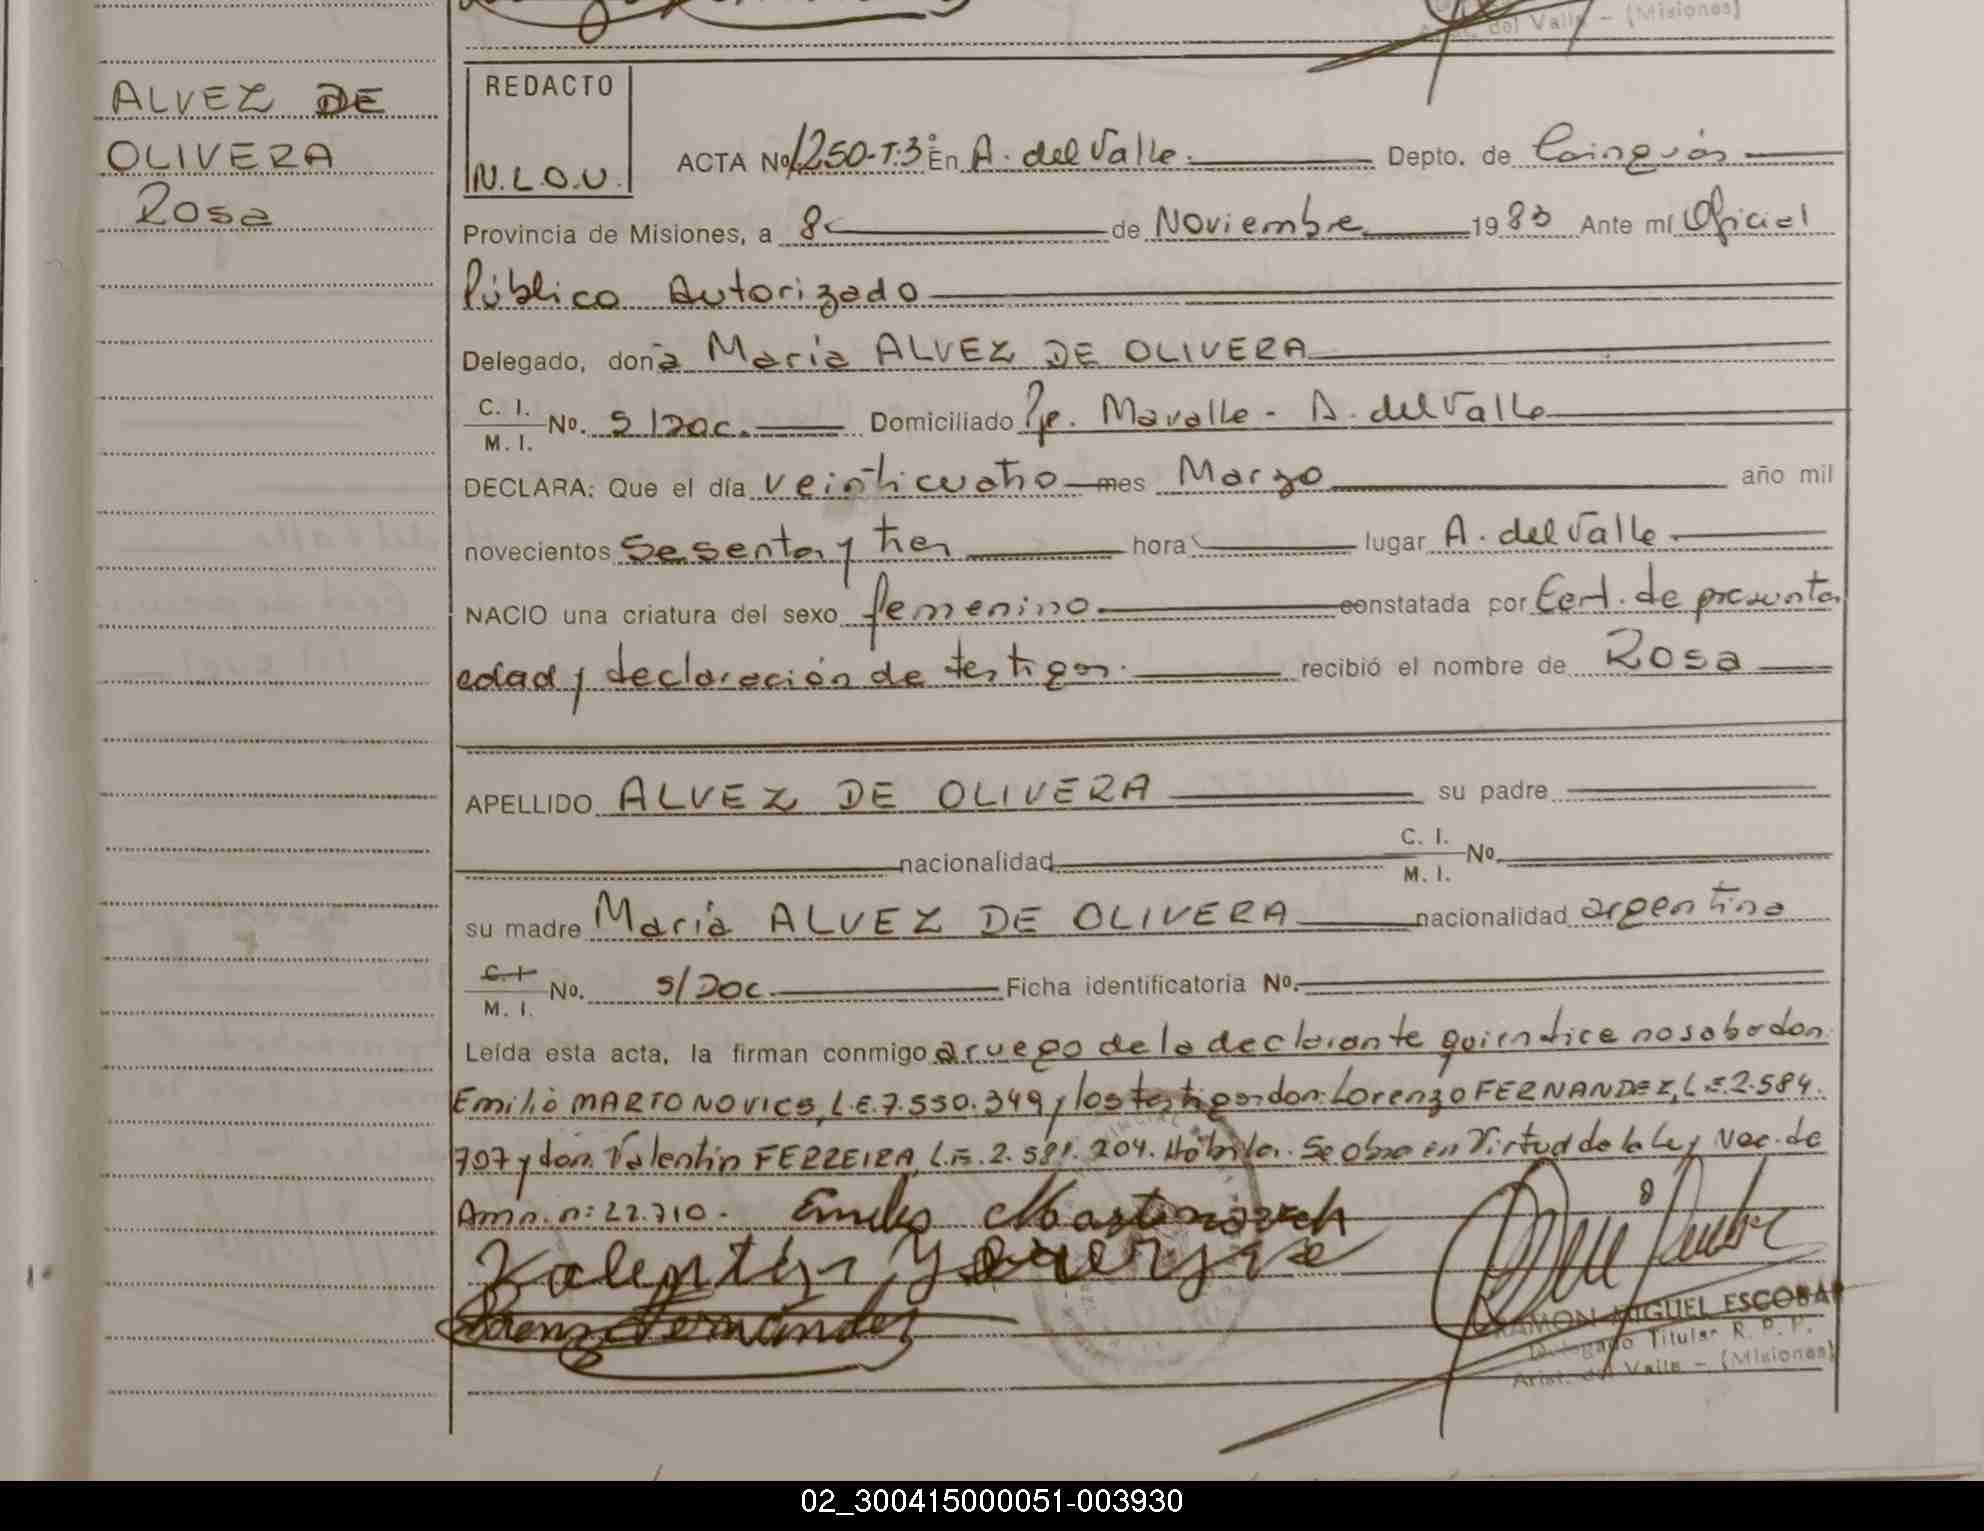 del Valle - (Misiones)
ALVEZ DE
OLIVERA
Rosa
REDACTO
N.L.O.U.
ACTA No 1250-T.3º En A. del Valle. Depto. de Cainguás
Provincia de Misiones, a 8 de Noviembre 1983 Ante mí Oficial
Público Autorizado
Delegado, doña María ALVEZ DE OLIVERA
C. I.
M. I.
No. S/Doc. Domiciliado Pje. Mavalle - A. del Valle
DECLARA: Que el día veinticuatro mes Marzo año mil
novecientos Sesenta y tres hora lugar A. del Valle
NACIO una criatura del sexo femenino constatada por Cert. de presunta
edad y declaración de testigos. recibió el nombre de Rosa
APELLIDO ALVEZ DE OLIVERA su padre
nacionalidad C. I.
M. I.
No.
su madre María ALVEZ DE OLIVERA nacionalidad argentina
C. I.
M. I.
No. S/Doc. Ficha identificatoria No.
Leída esta acta, la firman conmigo a ruego de la declarante quien dice no saber don
Emilio MARTONOVICS, L.E.7.550.349 y los testigos don: Lorenzo FERNANDEZ, L.E.2.584.
707 y don Valentín FERREIRA, L.E. 2.581.204. Hábiles. Se obra en Virtud de la Ley Nac. de
Amn. n: 22.710.
Valentín
Lorenzo Fernandez
RAMON MIGUEL ESCOBAR
Delegado Titular R. P. P.
Arist. del Valle - (Misiones)
02_300415000051-003930